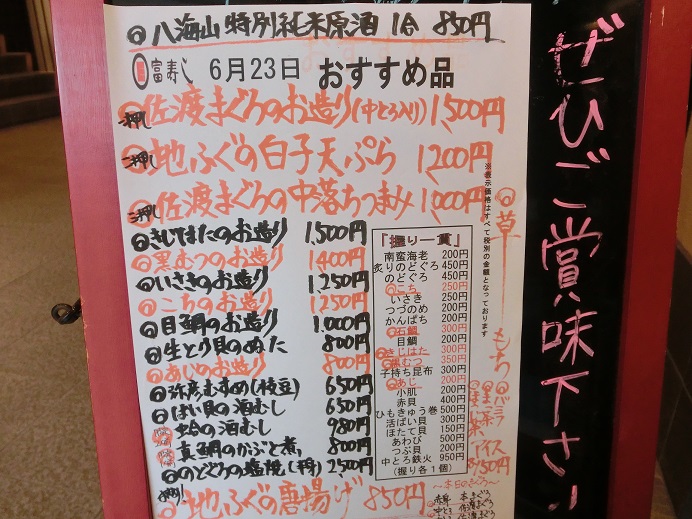 ◎八海山特別純米原酒 1合 850円
富寿し 6月23日 おすすめ品
一押し ◎佐渡まぐろのお造り(中とろ入り) 1,500円
二押し 地ふぐの白子天ぷら 1,200円
三押し ◎佐渡まぐろの中落ちつまみ 1,000円
◎きじはたのお造り 1,500円
◎黒むつのお造り 1400円
◎いさきのお造り 1,250円
◎こちのお造り 1250円
◎目鯛のお造り 1,000円
◎生とり貝のぬた 800円
◎あじのお造り 800円
◎弥彦むすめ(枝豆) 650円
◎ばい貝の酒むし 650円
蛤の酒むし 980円
真鯛のかぶと煮 800円
◎のどぐろの塩焼(半身) 2500円
地ふぐの唐揚げ 850円
『握り一貫』
南蛮海老 200円
炙りのどぐろ 450円
のどぐろ 450円
◎こち 250円
いさき 250円
つづのめ 200円
かんぱち 200円
◎石鯛 300円
目鯛 200円
◎きじはた 300円
◎黒むつ 350円
子持ち昆布 300円
◎あじ 200円
小肌 200円
赤貝 400円
ひもきゅう巻 500円
活ばい貝 300円
ほたて貝 150円
あわび 500円
つぶ貝 200円
中とろ鉄火 950円
(握り各1個)
※表示価格はすべて税別の金額となっております
◎草もち
◎バニラ
アイス
各150円
〜本日のまぐろ〜
赤身 本まぐろ
中とろ 佐渡まぐろ
ぜひご賞味下さい